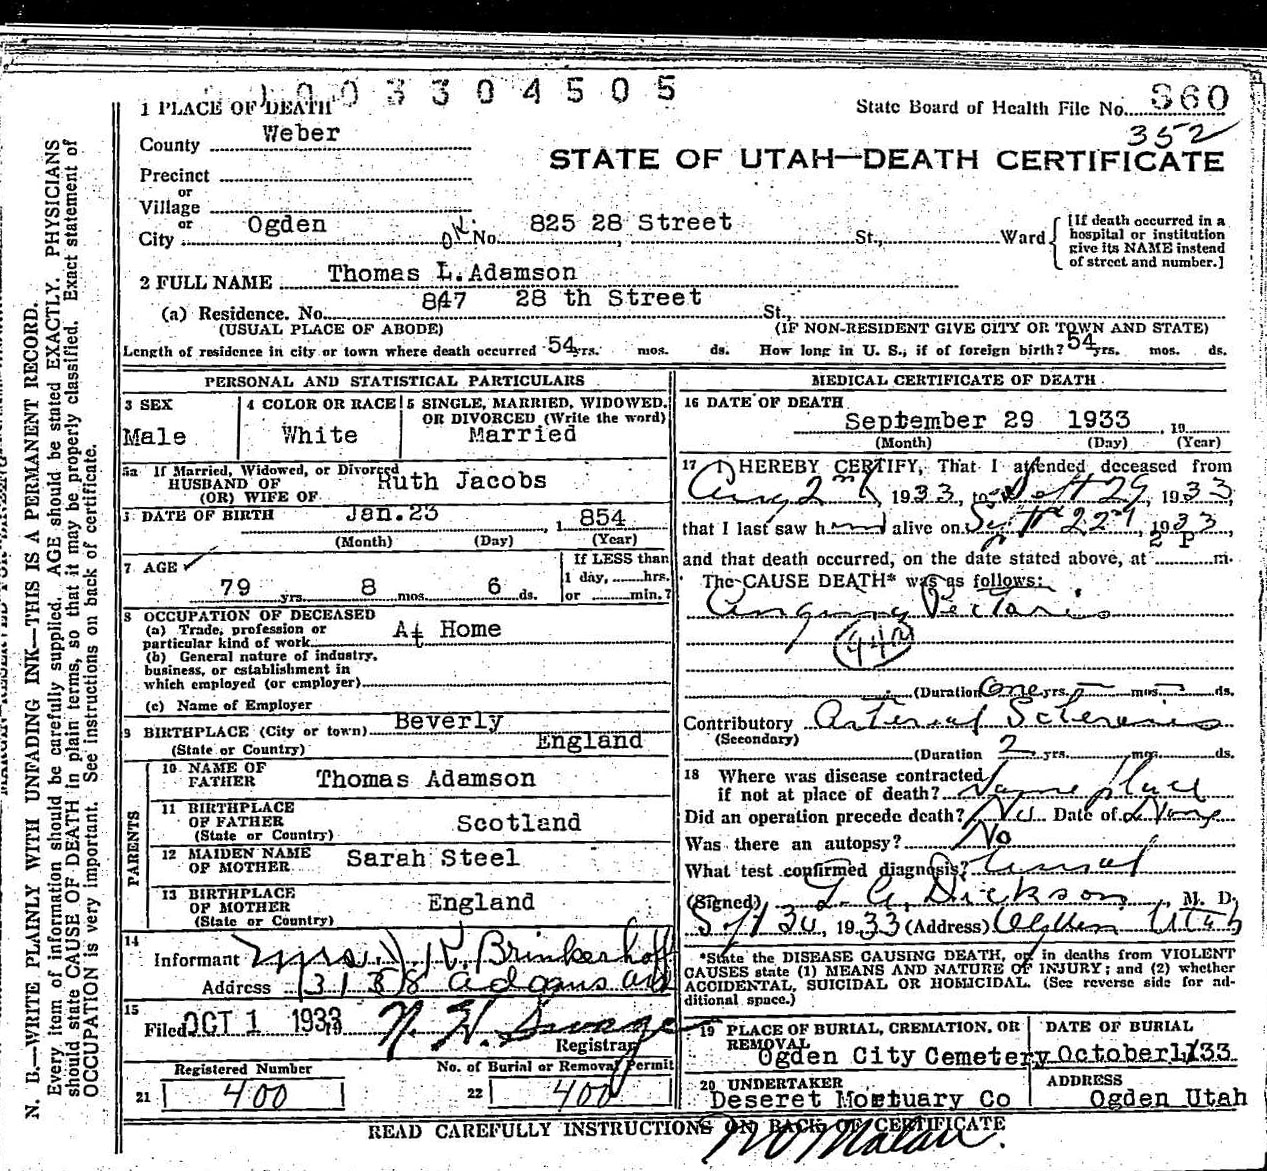 1003304505
1 PLACE OF DEATH
State Board of Health File No. 360
352
County Weber
STATE OF UTAH—DEATH CERTIFICATE
Precinct
or
Village
or
City Ogden OK No. 825 28 Street St., Ward
[If death occurred in a hospital or institution give its NAME instead of street and number.]
2 FULL NAME Thomas L. Adamson
(a) Residence. No. 847 28 th Street St.,
(USUAL PLACE OF ABODE) (IF NON-RESIDENT GIVE CITY OR TOWN AND STATE)
Length of residence in city or town where death occurred 54 yrs. mos. ds. How long in U. S., if of foreign birth? 54 yrs. mos. ds.
PERSONAL AND STATISTICAL PARTICULARS
3 SEX
Male
4 COLOR OR RACE
White
5 SINGLE, MARRIED, WIDOWED,
OR DIVORCED (Write the word)
Married
5a If Married, Widowed, or Divorced
HUSBAND OF
(OR) WIFE OF Ruth Jacobs
DATE OF BIRTH Jan.23 , 1 854
(Month) (Day) (Year)
7 AGE
79 yrs. 8 mos. 6 ds.
If LESS than
1 day, hrs.
or min.?
8 OCCUPATION OF DECEASED
(a) Trade, profession or
particular kind of work At Home
(b) General nature of industry,
business, or establishment in
which employed (or employer)
(c) Name of Employer
9 BIRTHPLACE (City or town) Beverly
(State or Country) England
PARENTS
10 NAME OF
FATHER Thomas Adamson
11 BIRTHPLACE
OF FATHER
(State or Country) Scotland
12 MAIDEN NAME
OF MOTHER Sarah Steel
13 BIRTHPLACE
OF MOTHER
(State or Country) England
14
Informant Mrs. J. K. Brinkerhoff
Address 3188 Adams
15
Filed OCT 1 1933
Registrar
Registered Number
21 400
No. of Burial or Removal Permit
22 400
MEDICAL CERTIFICATE OF DEATH
16 DATE OF DEATH
September 29 1933 , 19
(Month) (Day) (Year)
17 I HEREBY CERTIFY, That I attended deceased from
Aug 2nd 1933, to Sept 29, 1933,
that I last saw h alive on Sept 22nd, 1933,
and that death occurred, on the date stated above, at 2 P m.
The CAUSE DEATH* was as follows:
Angina Pectoris
(Duration) One yrs. mos. ds.
Contributory Arterial Sclerosis
(Secondary)
(Duration 2 yrs. mos. ds.
18 Where was disease contracted
if not at place of death? Same place
Did an operation precede death? No Date of None
Was there an autopsy? No
What test confirmed diagnosis? Usual
(Signed) Dickson, M. D.
Sept 30, 1933 (Address) Ogden Utah
*State the DISEASE CAUSING DEATH, or in deaths from VIOLENT
CAUSES state (1) MEANS AND NATURE OF INJURY; and (2) whether
ACCIDENTAL, SUICIDAL OR HOMICIDAL. (See reverse side for ad-
ditional space.)
19 PLACE OF BURIAL, CREMATION, OR
REMOVAL
Ogden City Cemetery
DATE OF BURIAL
October 1, 33
20 UNDERTAKER
Deseret Mortuary Co
ADDRESS
Ogden Utah
READ CAREFULLY INSTRUCTIONS ON BACK OF CERTIFICATE
N. B.—WRITE PLAINLY WITH UNFADING INK—THIS IS A PERMANENT RECORD.
Every item of information should be carefully supplied. AGE should be stated EXACTLY. PHYSICIANS
should state CAUSE OF DEATH in plain terms, so that it may be properly classified. Exact statement of
OCCUPATION is very important. See instructions on back of certificate.